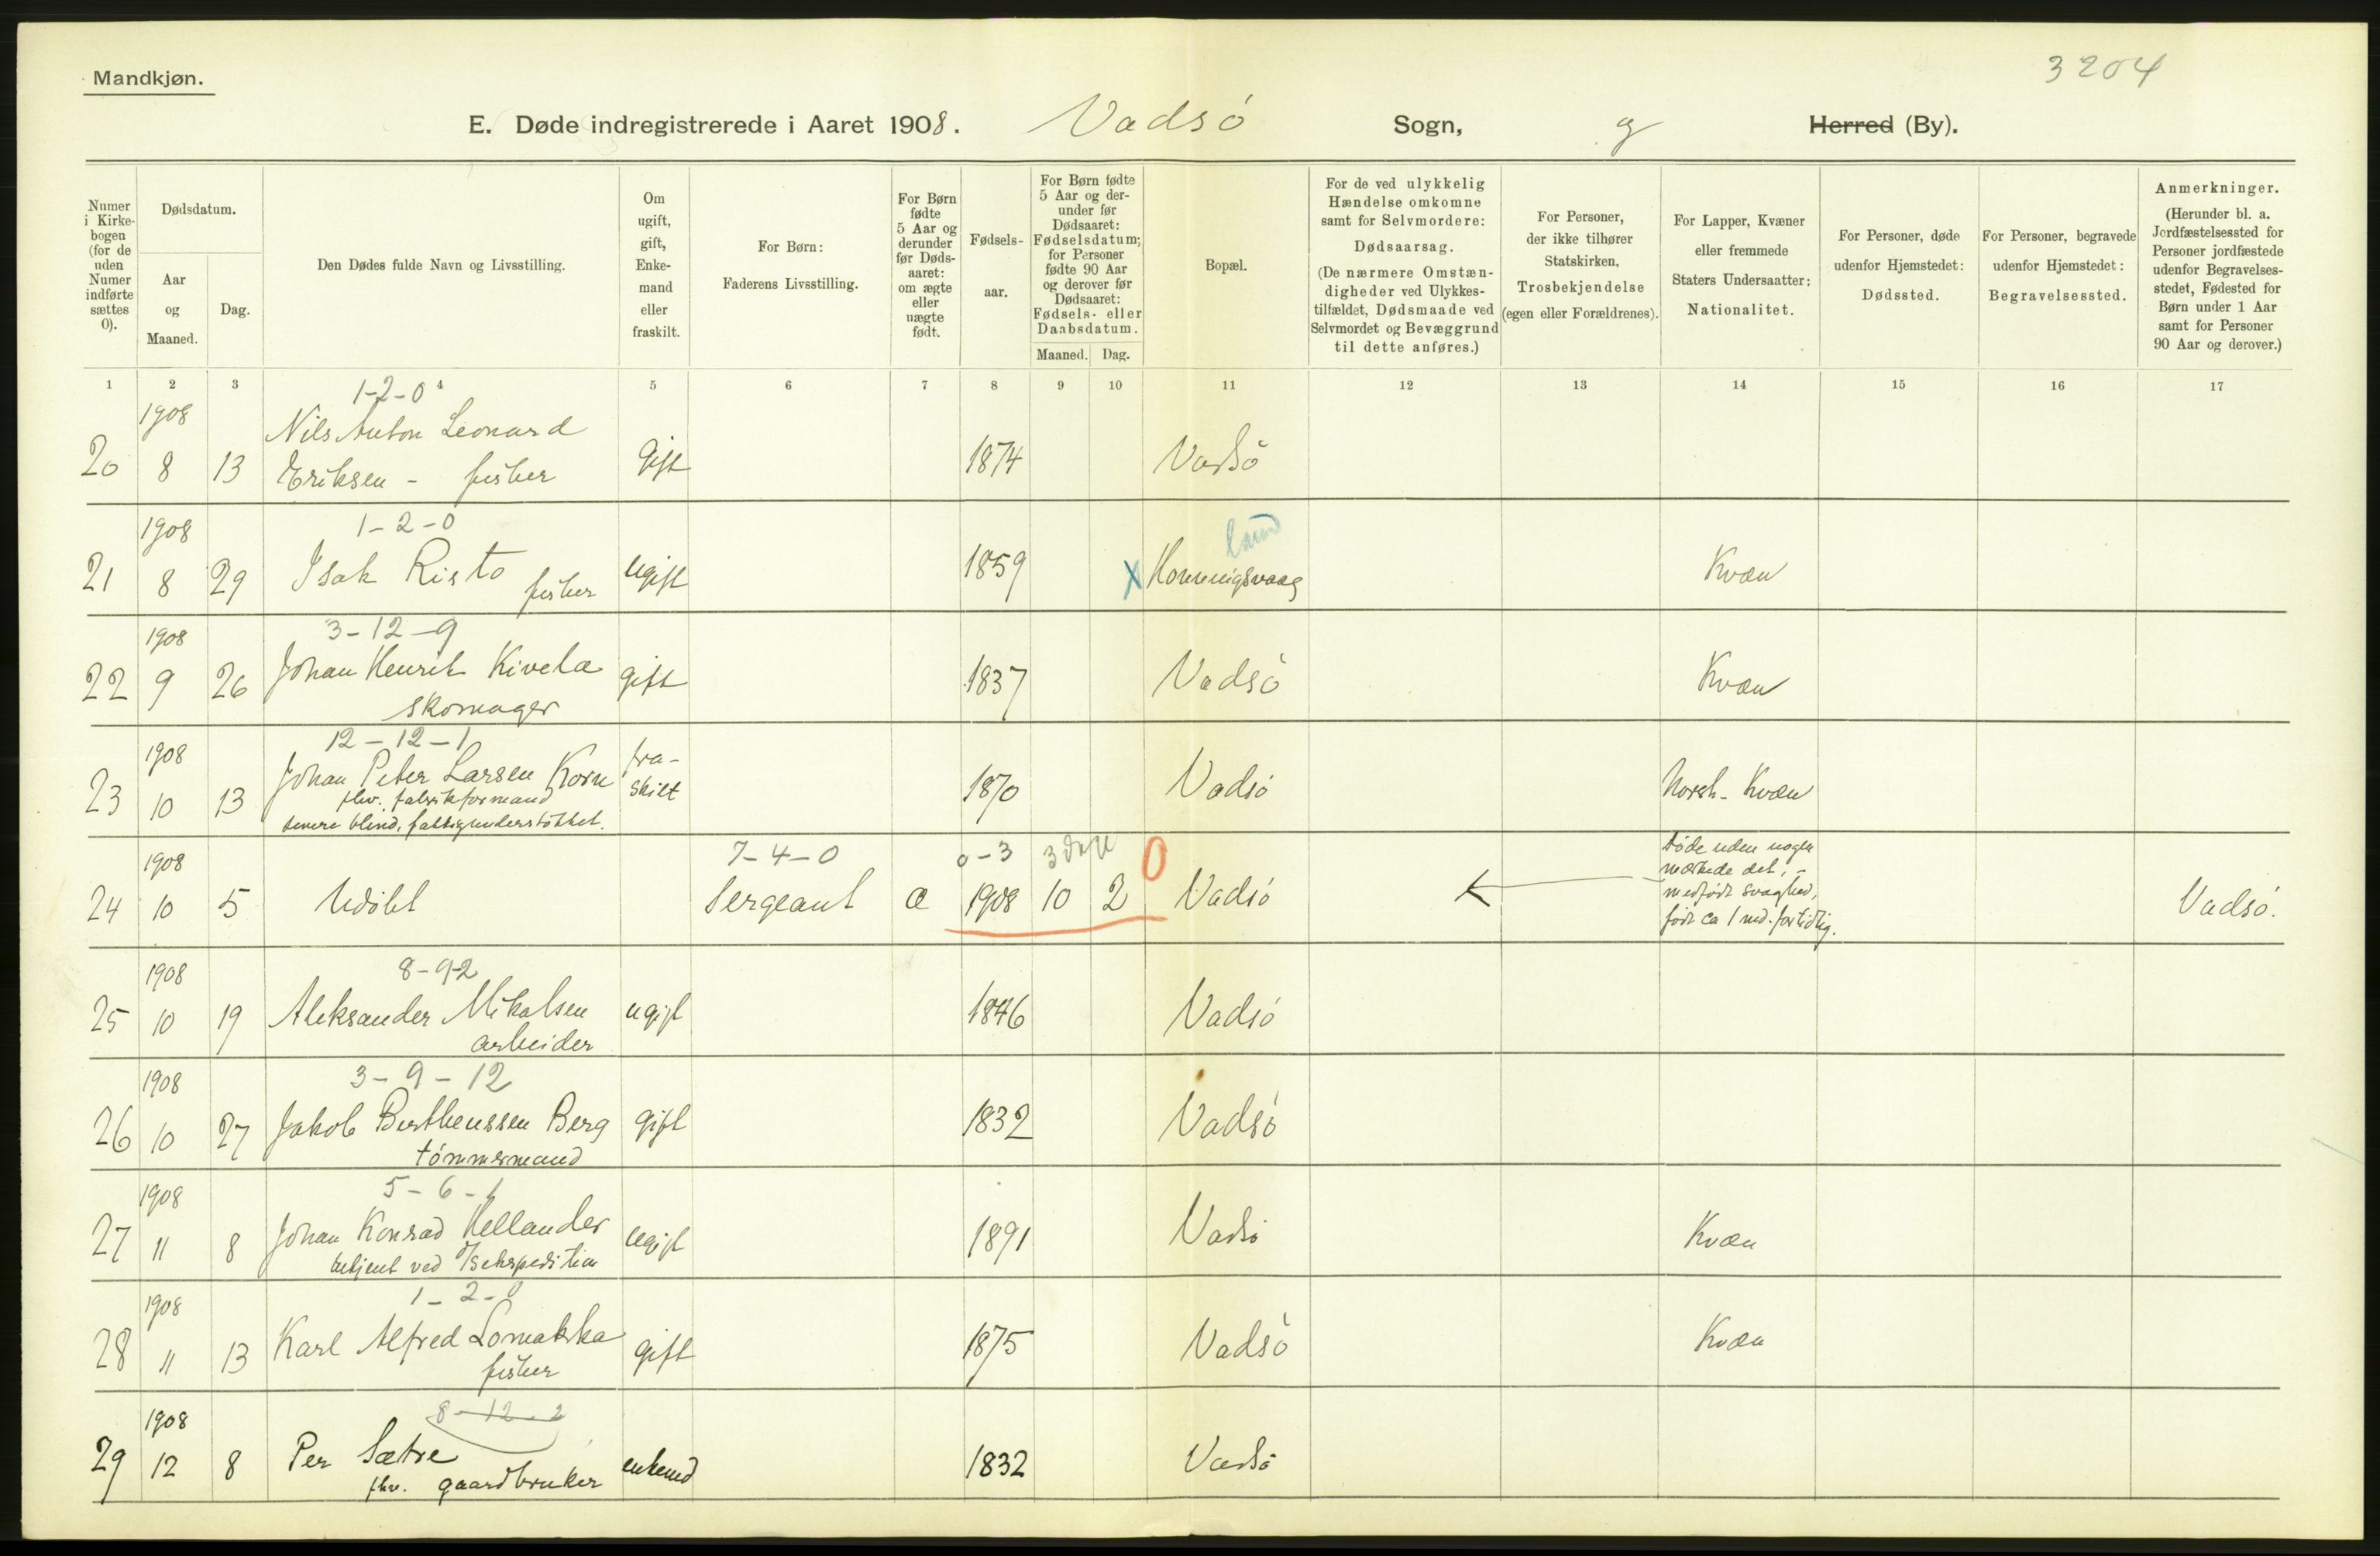 Mandkjøn.
3204
E. Døde indregistrerede i Aaret 1908. Vadsö Sogn, g Herred (By).
Numer i Kirkebogen (for de uden Numer indførte sættes 0).
Dødsdatum.
Aar og Maaned.
Dag.
Den Dødes fulde Navn og Livsstilling.
Om ugift, gift, Enkemand eller fraskilt.
For Børn: Faderens Livsstilling.
For Børn fødte 5 Aar og derunder før Dødsaaret: om ægte eller uægte født.
Fødselsaar.
For Børn fødte 5 Aar og derunder før Dødsaaret: Fødselsdatum; for Personer fødte 90 Aar og derover før Dødsaaret: Fødsels- eller Daabsdatum.
Maaned. Dag.
Bopæl.
For de ved ulykkelig Hændelse omkomne samt for Selvmordere: Dødsaarsag. (De nærmere Omstændigheder ved Ulykkestilfældet, Dødsmaade ved Selvmordet og Bevæggrund til dette anføres.)
For Personer, der ikke tilhører Statskirken, Trosbekjendelse (egen eller Forældrenes).
For Lapper, Kvæner eller fremmede Staters Undersaatter: Nationalitet.
For Personer, døde udenfor Hjemstedet: Dødssted.
For Personer, begravede udenfor Hjemstedet: Begravelsessted.
Anmerkninger. (Herunder bl. a. Jordfæstelsessted for Personer jordfæstede udenfor Begravelsesstedet, Fødested for Børn under 1 Aar samt for Personer 90 Aar og derover.)
1 2 3 4 5 6 7 8 9 10 11 12 13 14 15 16 17
1-2-0
1908
Nils Anton Leonard
20 8 13 Eriksen - fisker gift 1874 Vadsö
1908 1-2-0
land
21 8 29 Isak Risto fisker ugift 1859 x Honnigsvaag Kvæn
1908 3-12-9
22 9 26 Johan Henrik Kivela gift 1837 Vadsö Kvæn
skomager
1908 12-12-1
23 10 13 Johan Peter Larsen Korn fraskilt 1870 Vadsö Norsk-Kvæn
fhv. fabrikformand
senere blind, fattigunderstöttet.
1908 7-4-0 0-3 3 0
24 10 5 Udöbt Sergeant æ 1908 10 2 Vadsö Vadsö.
döde uden nogen
mærkede det, -
medfödt svaghed,
födt ca 1 md. for tidlig.
1908 8-9-2
25 10 19 Aleksander Mikalsen ugift 1846 Vadsö
arbeider
1908 3-9-12
26 10 27 Jakob Bertheussen Berg gift 1832 Vadsö
tömmermand
1908 5-6-1
27 11 8 Johan Konrad Hellander ugift 1891 Vadsö Kvæn
betjent ved D/Sekspedition
1908 1-2-0
28 11 13 Karl Alfred Lomakka gift 1875 Vadsö Kvæn
fisker
1908 8-12-2
29 12 8 Per Sætre enkemd 1832 Vadsö
fhv. gaardbruker